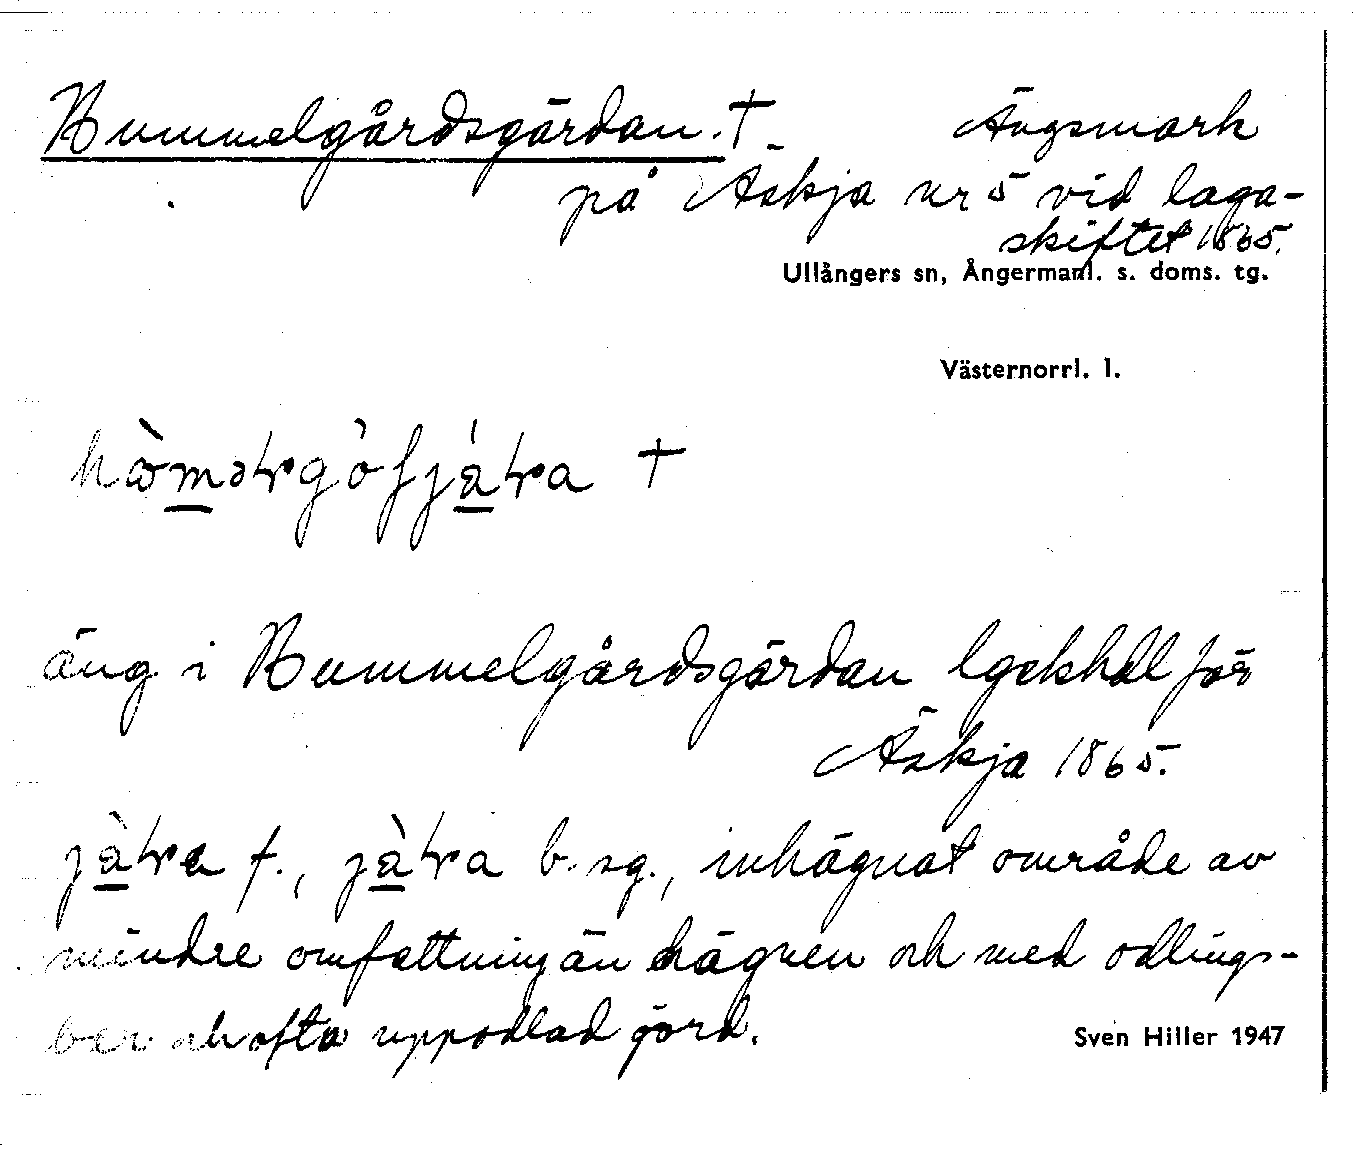 Hummelgårdsgärdan. † Ängsmark
på Äskja nr 5 vid laga-
skiftet 1865.
Ullångers sn, Ångermanl. s. doms. tg.
Västernorrl. l.
†
äng i Hummelgårdsgärdan lgskhdl för
Äskja 1865.
f., b. sg., inhägnat område av
mindre omfattning än hägnen och med odlings-
bar ofta uppodlad jord.
Sven Hiller 1947